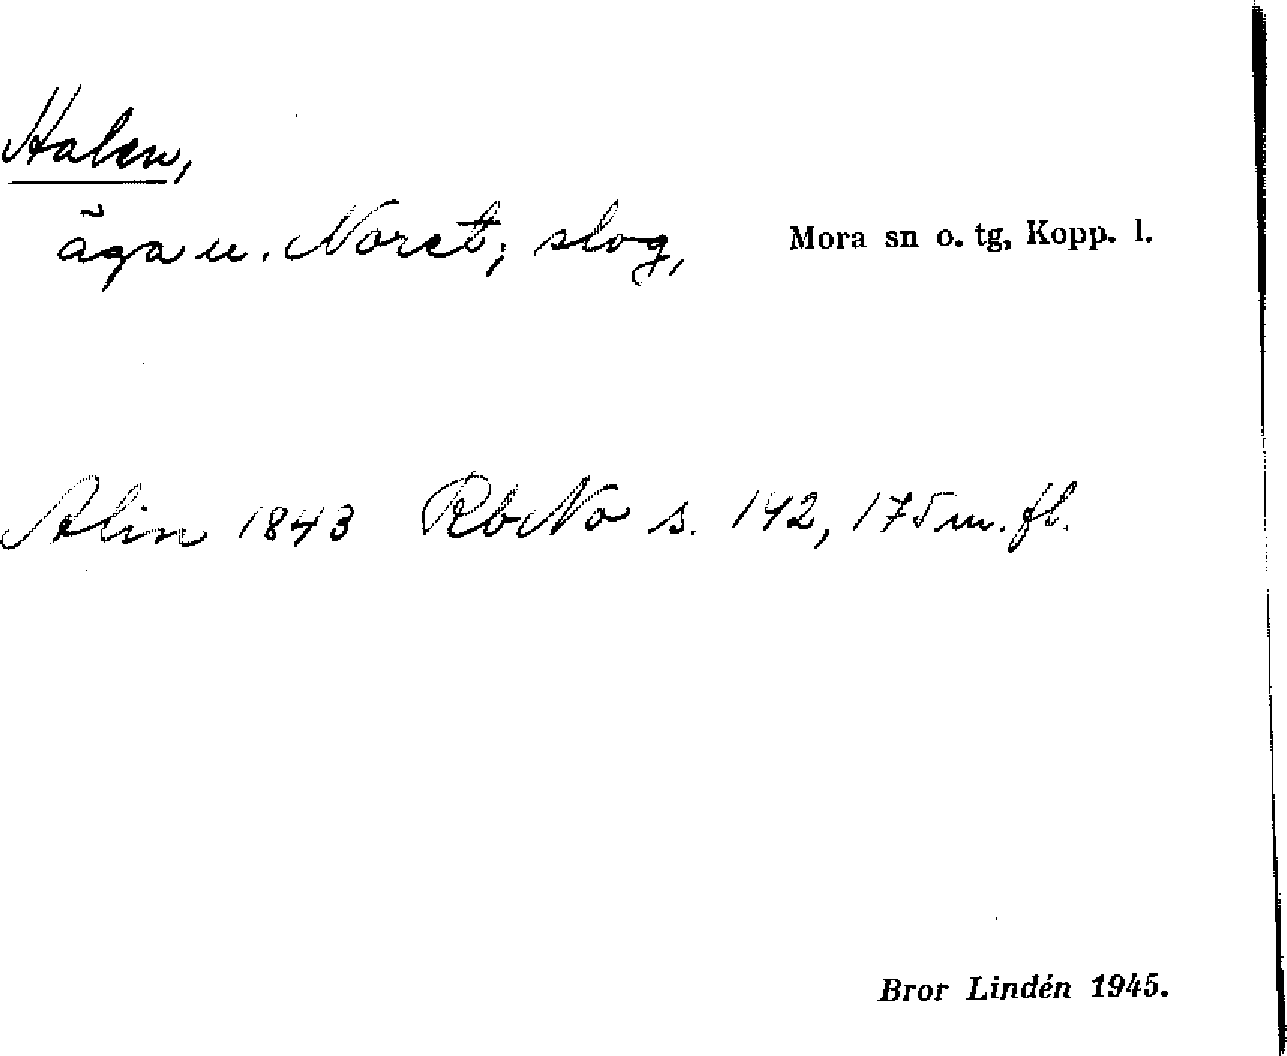 Halen,
äga u. Noret; slog,
Mora sn o. tg, Kopp. l.
Alin 1843 RbNo s. 142, 175 m. fl.
Bror Lindén 1945.